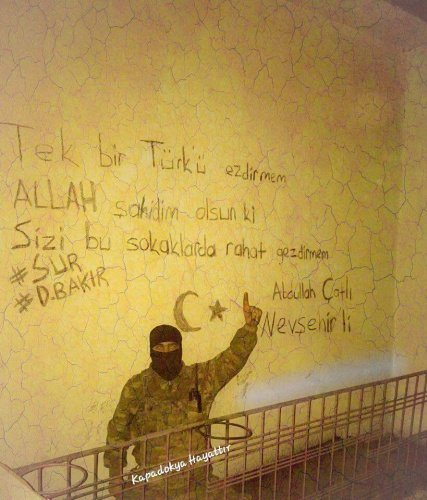 Tek bir Türk'ü ezdirmem
ALLAH şahidim olsun ki
Sizi bu sokaklarda rahat gezdirmem
#SUR
#D.BAKIR
Abdullah Çatlı
Nevşehirli
Kapadokya Hayattır